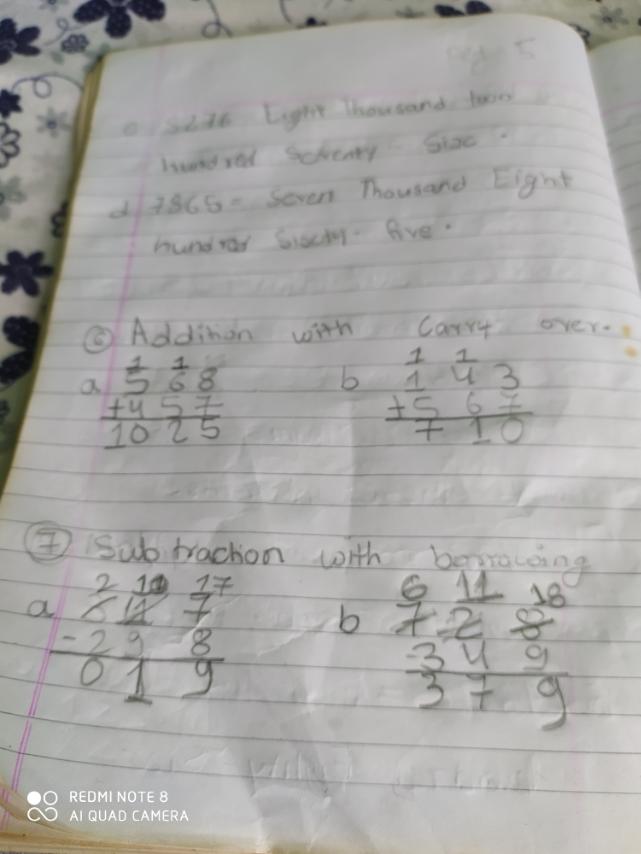 c 8276 Eight Thousand two
hundred Seventy - Six .
d 7865 = Seven Thousand Eight
hundred Sixty - five .
⑥ Addition with Carry over.
1 1 1 1
a 5 6 8 b 1 4 3
+4 5 7 +5 6 7
10 2 5 7 1 0
⑦ Subtraction with borrowing
2 10 17 6 11 18
a 1 7 b 7 2 8
-2 9 8 -3 4 9
0 1 9 3 7 9
REDMI NOTE 8
AI QUAD CAMERA